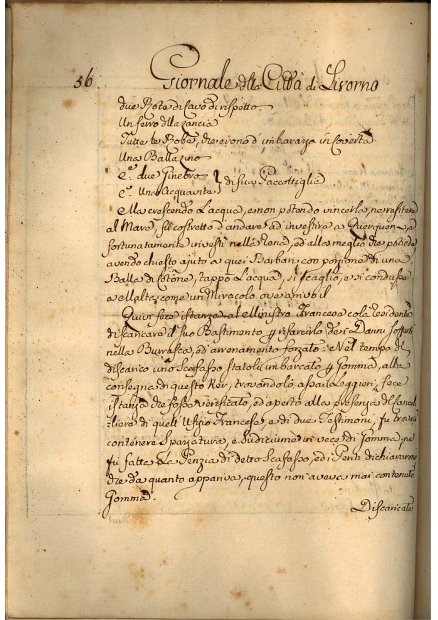 56 Giornale della Città di Livorno
due Rote di Cavo di rispetto.
Un ferro della lancia
Tutte le Robe, che erono d'imbarazo in Coverta
Una Balla lino
E. due Ginebro
E. Una Acquanta } di sue Paccottiglie
E Ma crescendo l'acqua, e non potendo vincerla, ne resistere
al Mare, fu costretto d'andare ad investire a Querquen
fortunatamente investì nella Rena, ed alla meglio che potè
avendo chiesto ajuto a quei Barbari con porzione di una
Balla di Cotone, tappò l'acqua, si scagliò, e si condusse
a Malta, come un Miracolo
Quivi fece istanza al Ministro Francese colà residente
di scaricare il suo Bastimento
nella Burrasca, ed arrenamento forzato: e Nel tempo del
discarico uno Scafasso statoli imbarcato Gomma, alla
consegna di questo trovandolo fece
istanza che fosse verificato, ed aperto alla presenza del Cancel=
liere di quell'Ufizio Francese, e di due Testimoni, fu trovato
contenere Spazzatura, e Sudiciume in vece di Gomma, ne
fu fatta La Perizia di detto Scafasso, ed i Periti dichiararono
che da quanto appariva, questo non aveva mai contenuto
Gomma.
Discaricato